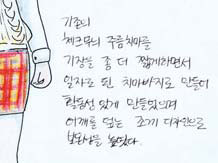 기존의
체크무늬 주름치마를
기장을 좀 더 짧게하면서
일자로 된 치마바지로 만들어
활동성 있게 만들었으며
어깨를 덮는 조끼 디자인으로
보온성을 높였다.